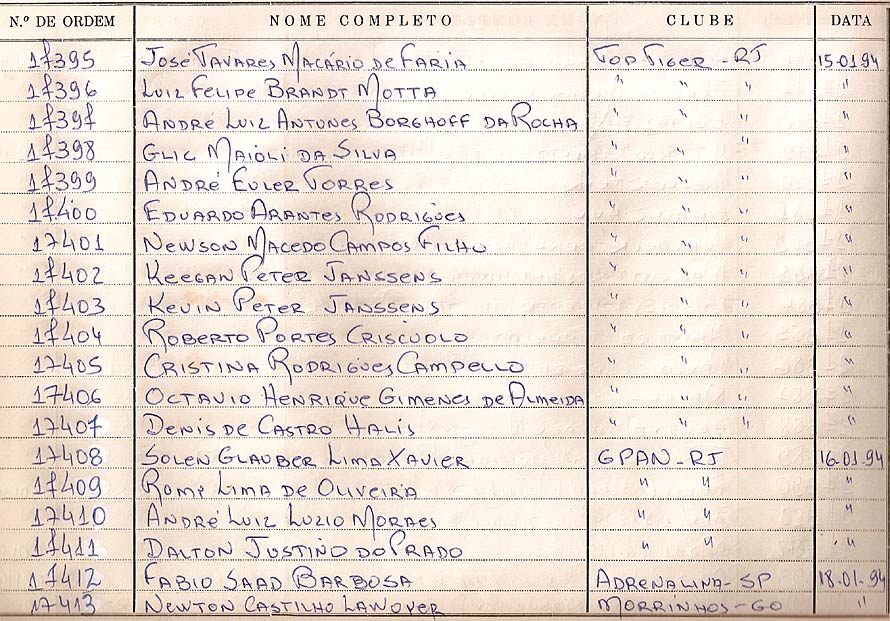 N.º DE ORDEM NOME COMPLETO CLUBE DATA
17395 José Tavares Macário de Faria Top Tiger - RJ 15-01-94
17396 Luiz Felipe Brandt Motta " " " "
17397 André Luiz Antunes Borghoff da Rocha " " " "
17398 Glic Maioli da Silva " " " "
17399 André Euler Torres " " " "
17400 Eduardo Arantes Rodrigues " " " "
17401 Newson Macedo Campos Filho " " " "
17402 Keegan Peter Janssens " " " "
17403 Kevin Peter Janssens " " " "
17404 Roberto Portes Criscuolo " " " "
17405 Cristina Rodrigues Campello " " "
17406 Octavio Henrique Gimenes de Almeida " " " "
17407 Denis de Castro Halis " " " "
17408 Solen Glauber Lima Xavier GPAN - RJ 16-01-94
17409 Romi Lima de Oliveira " " "
17410 André Luiz Luzio Moraes " " "
17411 Dalton Justino do Prado " " "
17412 Fabio Saad Barbosa Adrenalina - SP 18-01-94
17413 Newton Castilho Morrinhos - GO "